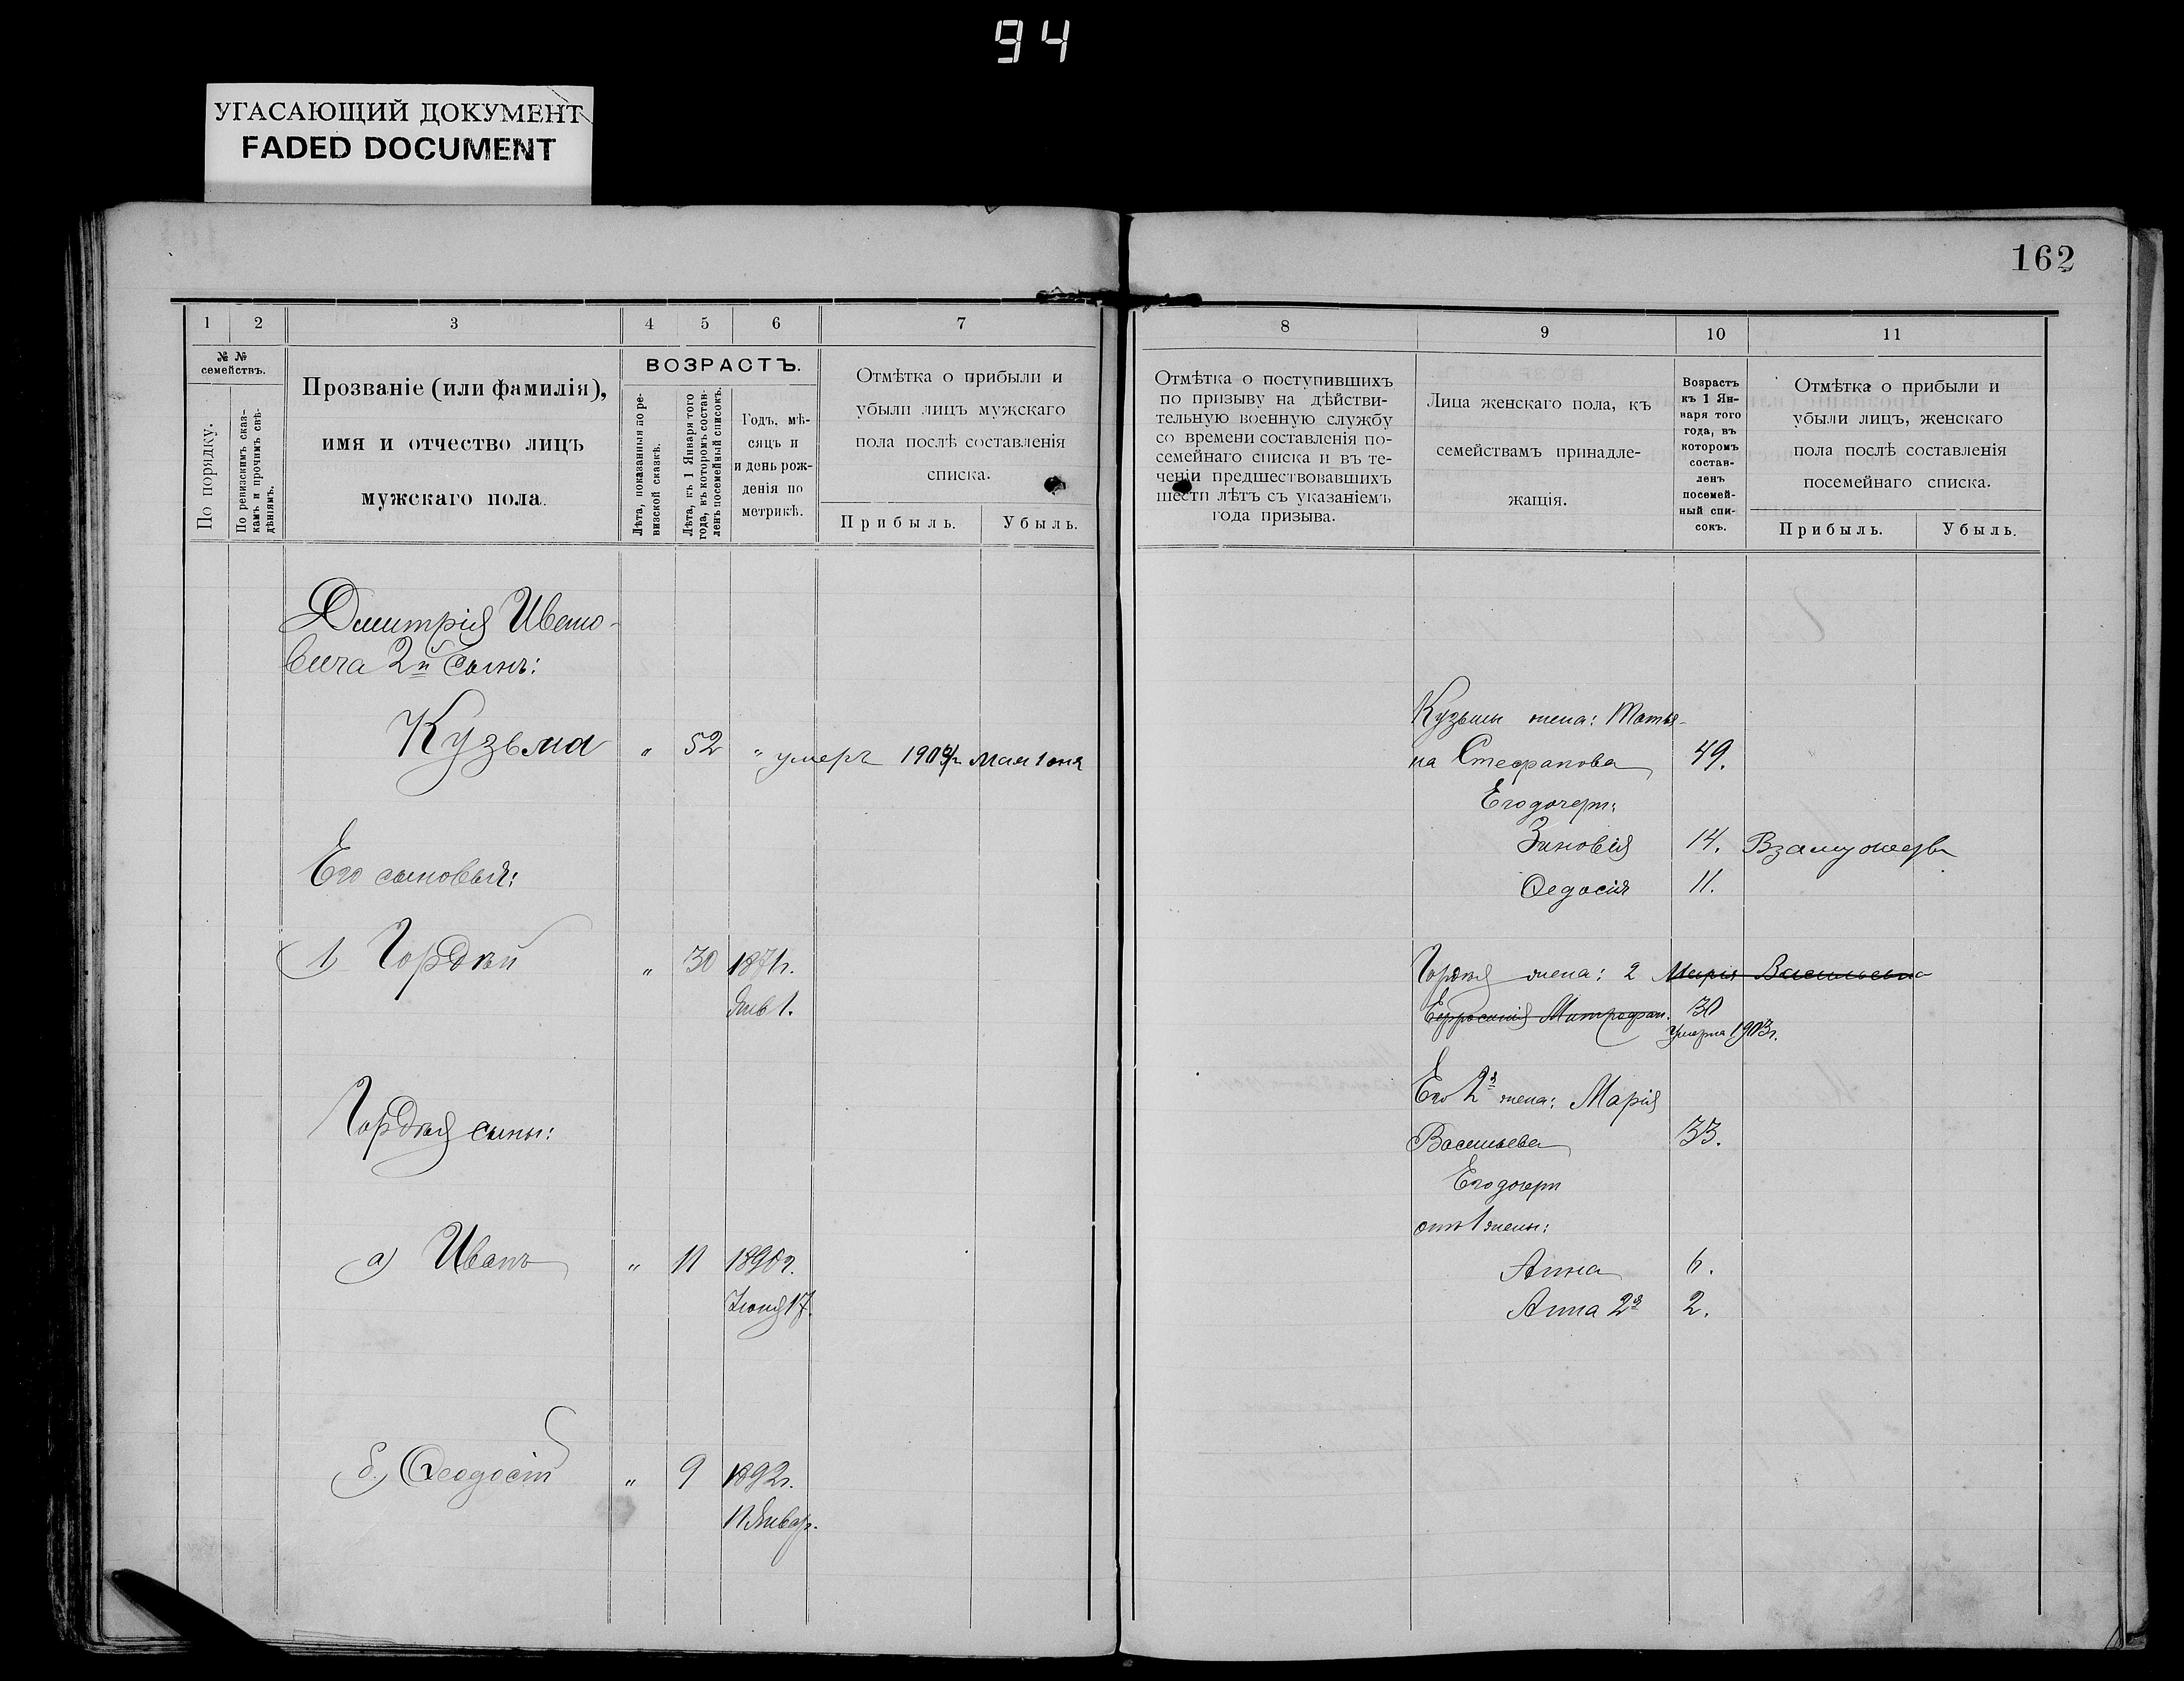 94
УГАСАЮЩИЙ ДОКУМЕНТ
FADED DOCUMENT
162
1 2 3 4 5 6 7
№ №
семействъ.
По порядку.
По ревизскимъ сказ-
камъ и прочимъ свѣ-
дѣніямъ.
Прозваніе (или фамилія),
имя и отчество лицъ
мужскаго пола.
ВОЗРАСТЪ.
Лѣта, показанныя по ре-
визской сказкѣ.
Лѣта, къ 1 Января того
года, въ которомъ состав-
ленъ посемейный списокъ.
Годъ, мѣ-
сяцъ и
и день рож-
денія по
метрикѣ.
Отмѣтка о прибыли и
убыли лицъ мужскаго
пола послѣ составленія
списка.
Прибыль. Убыль.
Дмитрія Ивано-
вича 2й сынъ:
Кузьма " 52 " умеръ 1904г. мая 1 дня
Его сыновья:
1) Гордѣй " 30 1871г.
Янв 1.
Гордѣя сыны:
а) Иванъ " 11 1890г.
Іюня 17.
б) Ѳеодосій " 9 1892г.
11 Январ.
8 9 10 11
Отмѣтка о поступившихъ
по призыву на дѣйстви-
тельную военную службу
со времени составленія по-
семейнаго списка и въ те-
ченіи предшествовавшихъ
шести лѣтъ съ указаніемъ
года призыва.
Лица женскаго пола, къ
семействамъ принадле-
жащія.
Возрастъ
къ 1 Ян-
варя того
года, въ
которомъ
состав-
ленъ
посемей-
ный спи-
сокъ.
Отмѣтка о прибыли и
убыли лицъ, женскаго
пола послѣ составленія
посемейнаго списка.
Прибыль. Убыль.
Кузьмы жена: Матья-
на Стефанова 49.
Его дочери:
Зиновія 14. Взамужествѣ
Ѳедосія 11.
Гордѣя жена: 2 Марія Васильевна
Ефросинія Митрофан. 30
Умерла 1903г.
Его 2я жена: Марія
Васильева 33.
Его дочери
отъ 1 жены:
Анна 6.
Анна 2я 2.